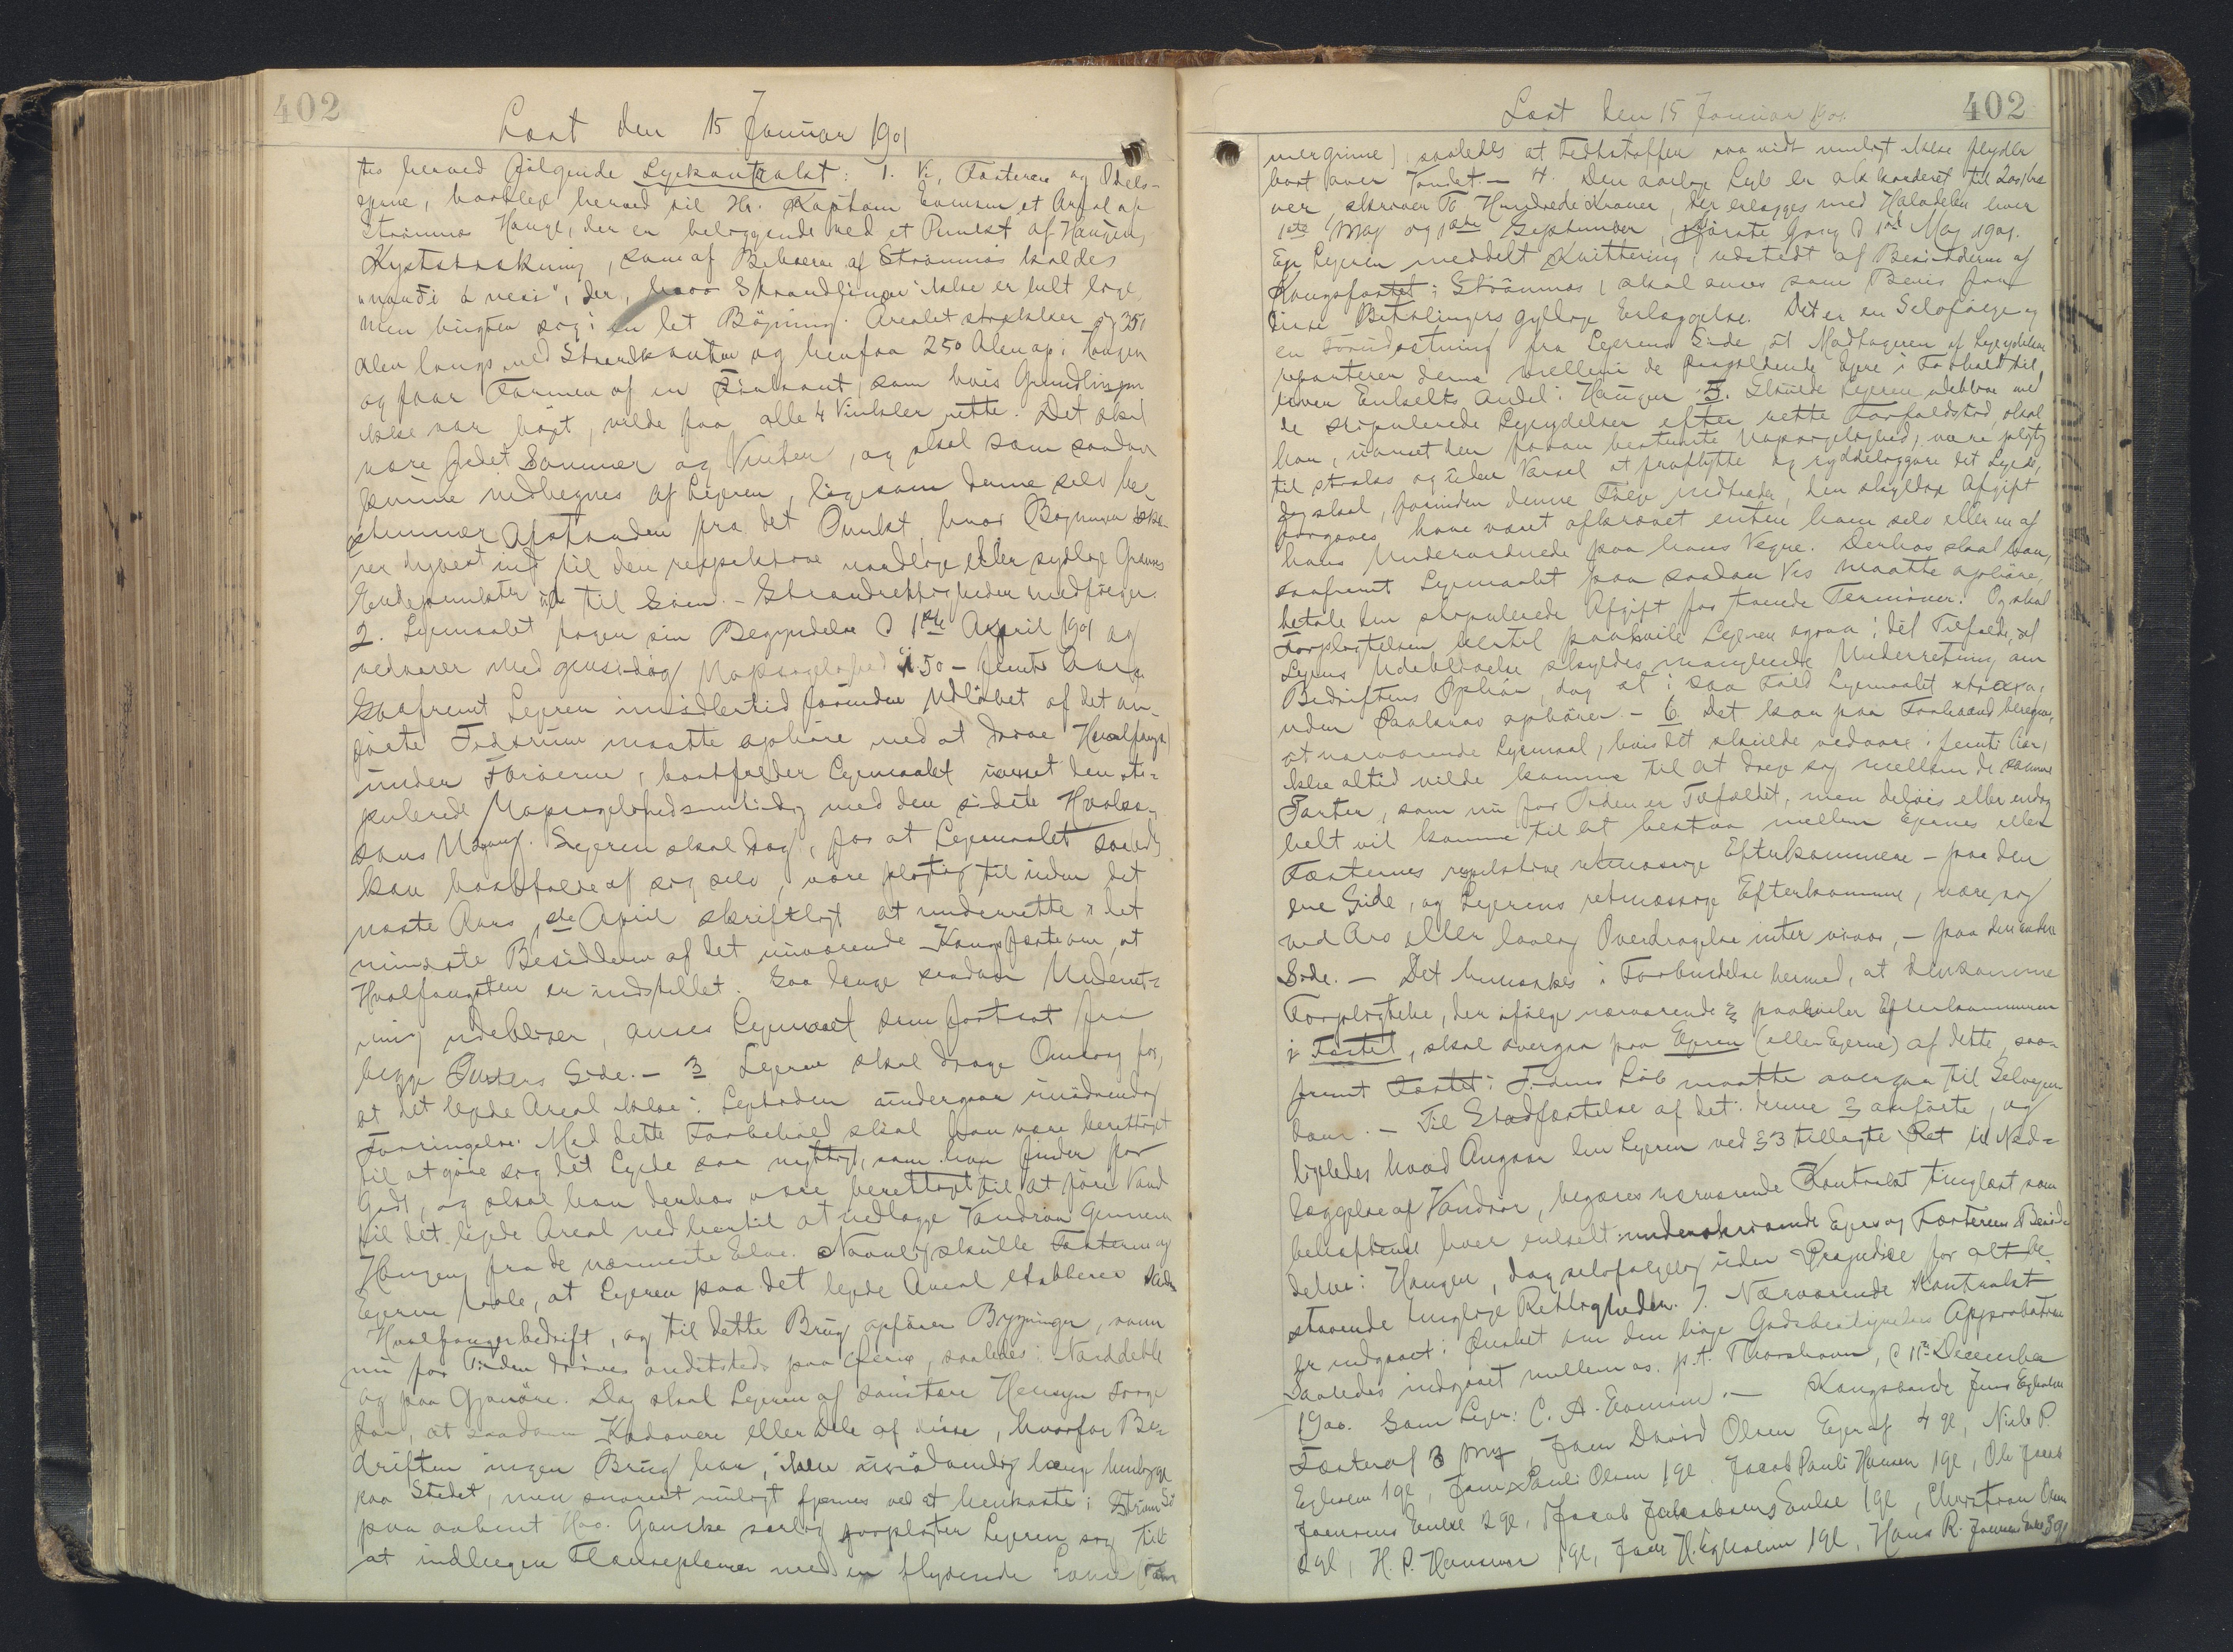 402
Læst den 15 Januar 1901
tes herved følgende Lejekontrakt: 1. Vi, Fæsterne og Odels-
ejerne, bortleje herved til Hr. Kaptain Evensen et Areal af
Strømnæs Hauge, der er beliggende ved et Punkt af Haugens
Kyststrækning, som af Beboerne af Strømnæs kaldes
der, hvor Strandlinjen ikke er helt lige,
men bugter sig i en let Bøjning. Arealet strækker sig 350
Alen langs med Strandkanten og henfra 250 Alen op i Haugen
og faar Formen af en Firkant, som hvis Grundlinjen
ikke var bøjet, vilde faa alle 4 Vinkler rette. Det skal
være fredet Sommer og Vinter, og skal som saadan
kunne indhegnes af Lejeren, ligesom denne selv be-
stemmer Afstanden fra det Punkt, hvor Bøjningen
dybest ind til den respektive nordlige eller sydlige Grænses
Endepunkter ud til Søen. - Strandrettigheden medfølger.
2. Lejemaalet tager sin Begyndelse d 1ste April 1901 og
vedvarer med gensidig Uopsigelighed i 50 - femti Aar.
Saafremt Lejeren imidlertid forinden Udløbet af det an-
førte Tidsrum maatte ophøre med at drive Hvalfangst
under Færøerne, bortfalder Lejemaalet uanset den sti-
pulerede Uopsigelighedsmæssig med den sidste Hvalsæ-
sons Udgang. Lejeren skal dog, for at Lejemaalet saaledes
kan bortfalde af sig selv, være pligtig til inden det
næste Aars 1ste April skriftligt at underrette i det
mindste Besidderen af det nuværende Kongsfæste om, at
Hvalfangsten er indstillet. Saa længe saadan Underret-
ning udebliver, anses Lejemaalet som fortsat fra
begge Parters Side. - 3 Lejeren skal drage Omsorg for,
at det lejede Areal ikke i Lejetiden undergaar unødvendig
Forringelse. Med dette Forbehold skal han være berettiget
til at gøre sig det Lejede saa nyttigt, som han finder for
Godt, og skal han derhos være berettiget til at føre Vand
til det lejede Areal ved hertil at nedlægge Vandrør gennem
Haugen fra de nærmeste Elve. Navnlig skulle Fæsterne og
Ejerne taale, at Lejeren paa det lejede Areal etablerer
Hvalfangerbedrift, og til dette Brug opfører Bygninger, som
nu for Tiden drives andetsteds paa Øerne, saaledes i Norddeble
og paa Gjanøre. Dog skal Lejeren af sanitære Hensyn sørge
for, at saadanne Kadavere eller Dele af disse, hvorfor Be-
driften ingen Brug har, ikke unødvendig længe henligge
paa Stedet, men snarest muligt fjernes ved at henkastes i Strøm
paa aabent Hav. Ganske særlig forpligter Lejeren sig til
at indhegne Flænsepladsen med en flydende Lænse
402
Læst den 15 Januar 1901
saaledes at Fedtstoffer saa vidt muligt ikke flyder
bort over Vandet. - 4. Den aarlige Leje er akkorderet til 200 Kro-
ner, skriver To Hundrede Kroner, der erlægges med Halvdelen hver
1ste Maj og 1ste September, første Gang d 1ste Maj 1901.
En Lejeren meddelt Kvittering udstedt af Besidderen af
Kongsfæstet i Strømnæs, skal anses som Bevis for
disse Betalingers gyldige Erlæggelse. Det er en Selvfølge og
en Forudsætning fra Lejerens Side, at Modtageren af Lejeydelsen
reparterer denne mellem de paagældende Ejere i Forhold til
hver Enkelts Andel i Haugen. 5. Skulde Lejeren udeblive med
de stipulerede Lejeydelser efter rette Forfaldstid, skal
han, uanset den foran bestemte Uopsigelighed, være pligtig
til straks og uden Varsel at fraflytte og ryddeliggøre det Lejede,
dog skal, forinden denne Følge indtræder, den skyldige Afgift
forgæves have været afkrævet enten ham selv eller en af
hans Underordnede paa hans Vegne. Derhos skal han,
saafremt Lejemaalet paa saadan Vis maatte ophøre,
betale den stipulerede Afgift for tvende Terminer. Og skal
Forpligtelsen hertil paahvile Lejeren ogsaa i det Tilfælde, at
Lejens Udeblivelse skyldes manglende Underretning om
Bedriftens Ophør, dog at i saa Fald Lejemaalet straks
uden Paakrav ophører. - 6. Det kan paa Forhaand beregnes,
at nærværende Lejemaal, hvis det skulde vedvare i femti Aar,
ikke altid vilde komme til at dreje sig mellem de samme
Parter, som nu for Tiden er Tilfældet, men delvis eller endog
helt vil komme til at bestaa mellem Ejernes eller
Fæsternes respektive retmæssige Efterkommere - paa den
ene Side, og Lejerens retmæssige Efterkommere, være sig
ved Arv eller lovlig Overdragelse inter vivos, - paa den anden
Side. - Det bemærkes i Forbindelse hermed, at densamme
Forpligtelse, der ifølge nærværende § paahviler Efterkommeren
i Fæstet, skal overgaa paa Ejeren (eller Ejerne) af dette, saa-
fremt Fæstet i Tidens Løb maatte overgaa til Selvejen-
dom. - Til Stadfæstelse af det i denne § anførte, og
ligeledes hvad Angaar den Lejeren ved § 3 tillagte Ret til Ned-
læggelse af Vandrør, begæres nærværende Kontrakt tinglæst som
behæftende hver enkelt underskrivende Ejers og Fæsterens Besid-
delse i Haugen, dog selvfølgelig uden Præjudice for alt be-
staaende tinglige Rettigheder. 7. Nærværende Kontrakt
er indgaaet i Ønsket om den høje Godsbestyrelses Approbation
Saaledes indgaaet mellem os. p.t. Thorshavn, d 11te December
1900. Som Lejer: C. A. Evensen. - Kongsbonde Jens Egholm
Fæster af 3 Mrk, Joen David Olsen Ejer af 4 gl, Niels P.
Egholm 1 gl, Joen Pauli Olsen 1 gl. Jacob Pauli Hansen 1 gl, Ole Jacob
Joensens Enke 2 gl, Jacob Jakobsens Enke 1 gl, Christian Olsen
2 gl, H. P. Hansen 1 gl, Joen H. Egholm 1 gl, Hans R. Joensens Enke 3 gl